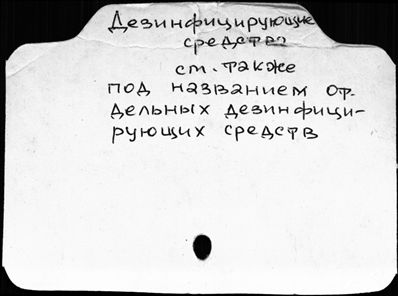 Дезинфицирующие
средства
см. также
под названием от-
дельных дезинфици-
рующих средств